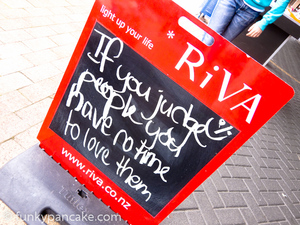 light up your life
RiVA
If you judge
people you
have no time
to love them
www.riva.co.nz
© funkypancake.com